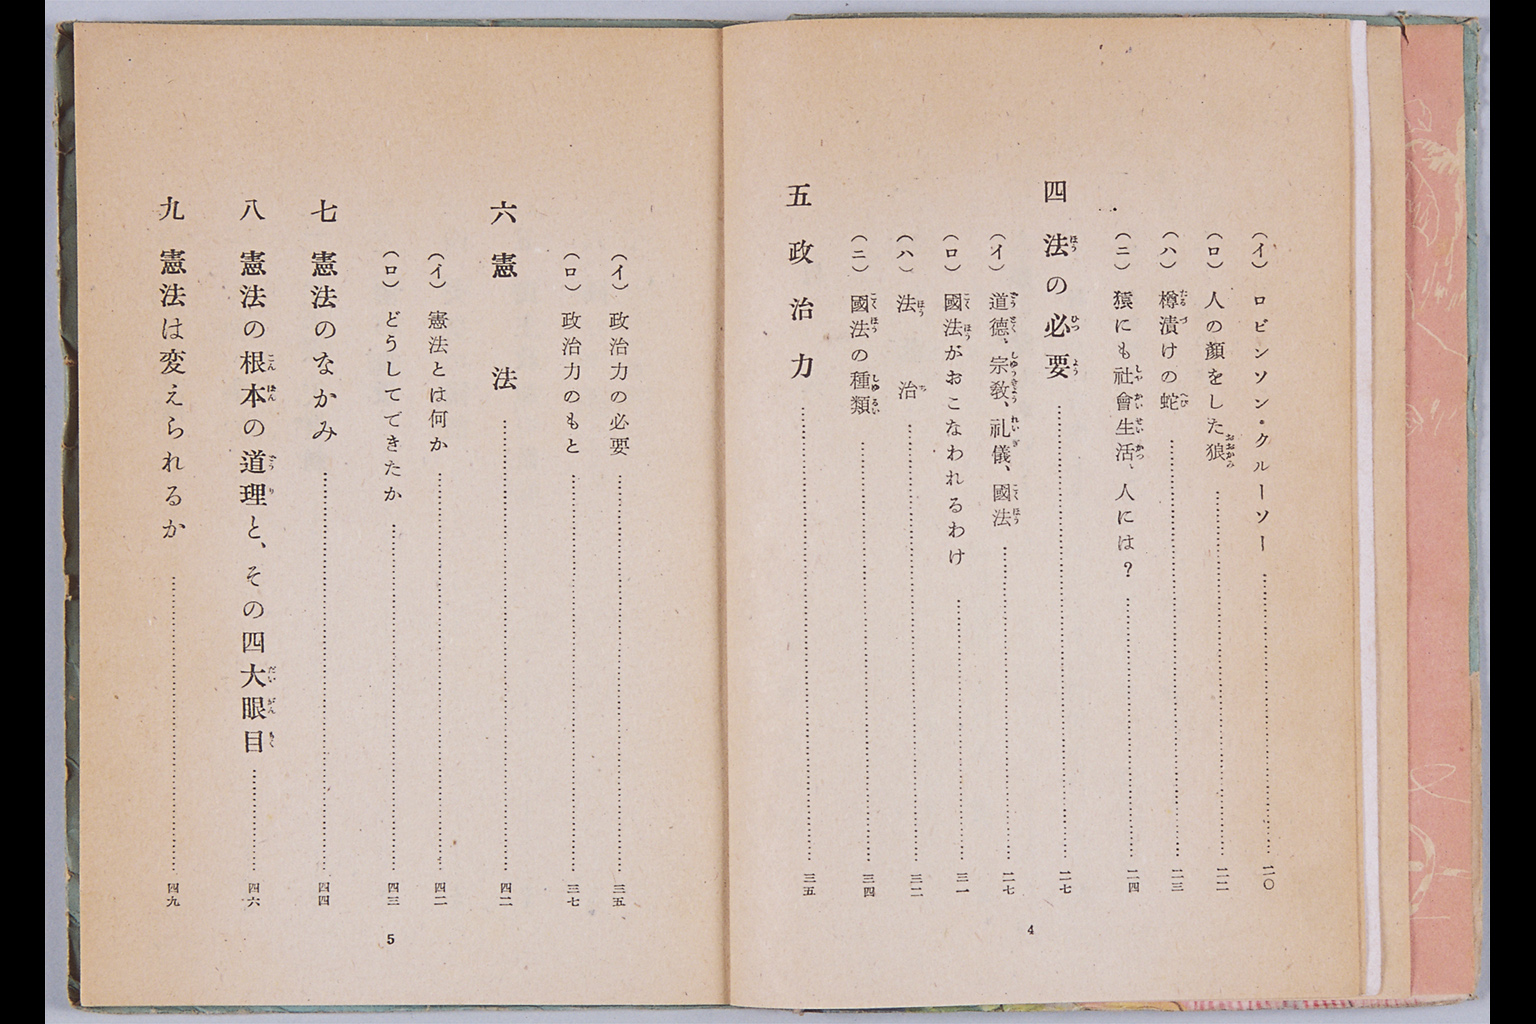 （イ）ロビンソン・クルーソー…………二〇
（ロ）人の顔をした狼…………二二
（ハ）樽漬けの蛇…………二三
（ニ）猿にも社會生活、人には？…………二四
四 法の必要…………二七
（イ）道徳、宗教、礼儀、國法…………二七
（ロ）國法がおこなわれるわけ…………三一
（ハ）法治…………三二
（ニ）國法の種類…………三四
五 政治力…………三五
4
（イ）政治力の必要…………三五
（ロ）政治力のもと…………三七
六 憲法…………四二
（イ）憲法とは何か…………四二
（ロ）どうしてできたか…………四三
七 憲法のなかみ…………四四
八 憲法の根本の道理と、その四大眼目…………四六
九 憲法は変えられるか…………四九
5